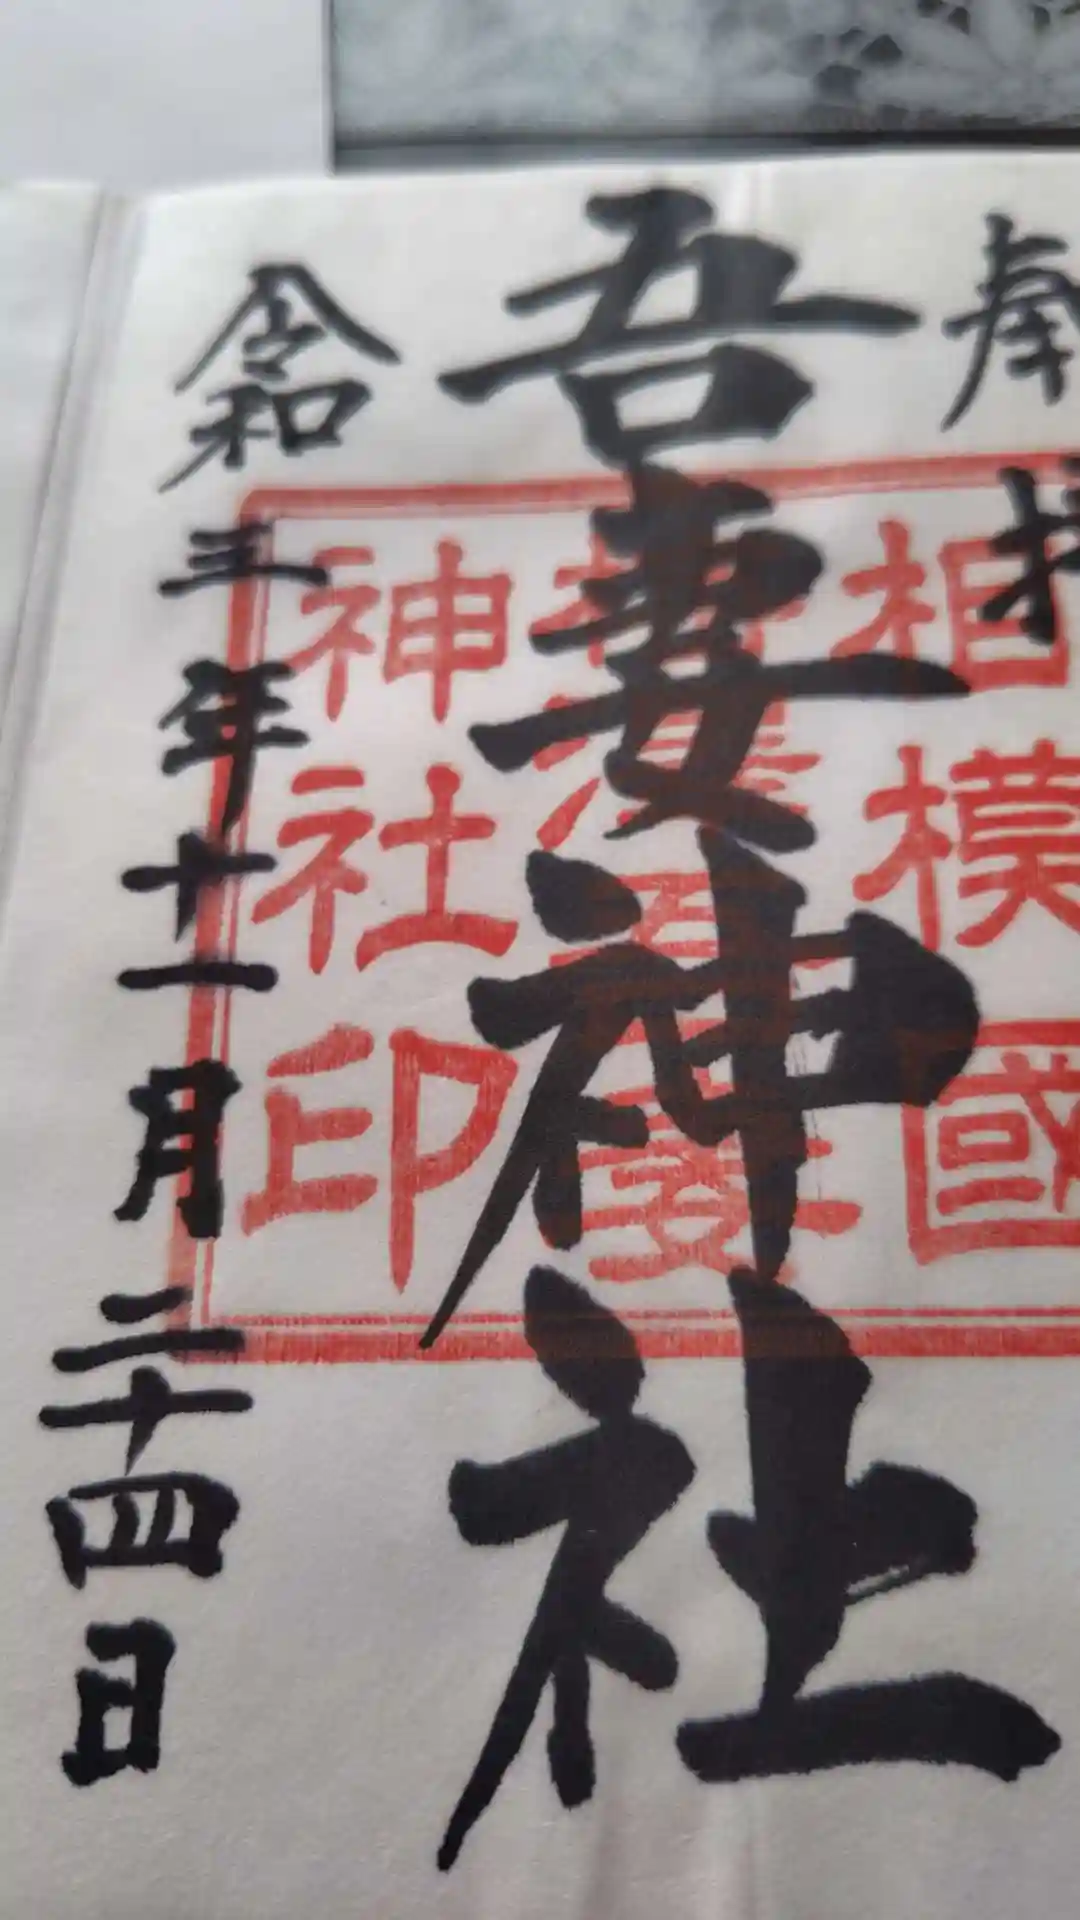 奉拝
吾妻神社
令和三年十一月二十四日
相模國
吾妻
神社印